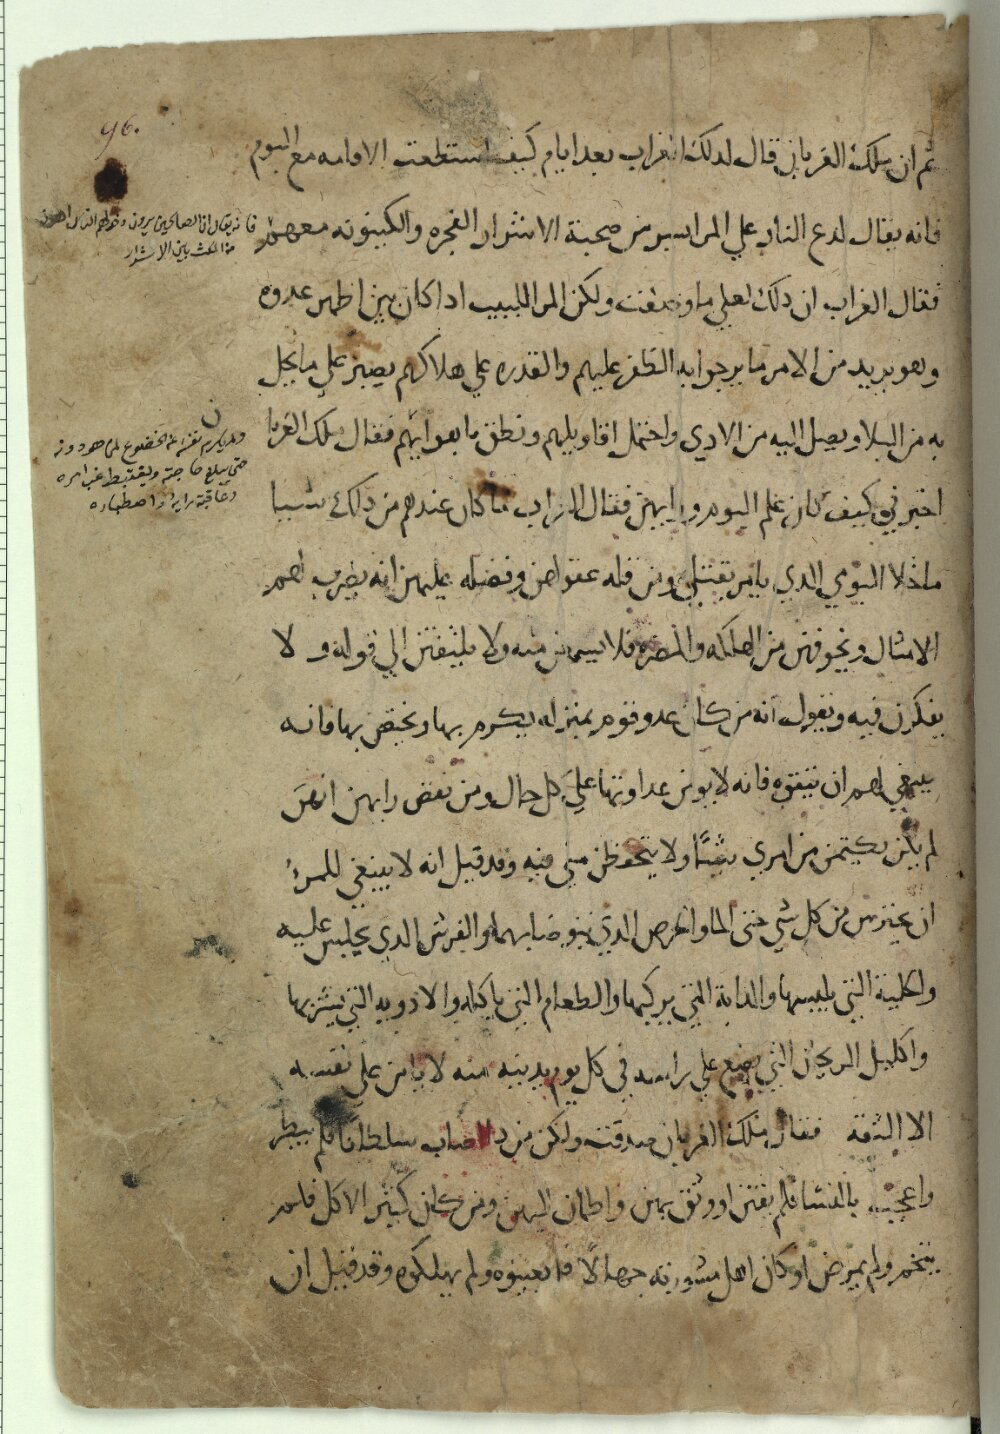 96.
ثم ان ملك الغربان قال لذلك الغراب بعد ايام كيف استطعت الاقامه مع البوم
فانه يقال لدع النار علي المر ايسر من صحبة الاشرار الفجره والكينونه معهم
فقال الغراب ان ذلك لعلي ما وصفت ولكن المر اللبيب اذا كان بين اظهر عدوه
وهو يريد من الامر ما يرجوا به الظفر عليهم والقدره علي هلاكهم يصبر علي ما يحل
به من البلا ويصل اليه من الادي واحتمل اقاويلهم ونطق بما هوايهم فقال ملك الغربا
اخبرني كيف كان علم البوم ورايهن فقال الغراب ما كان عندهم من ذلك شيا
ماخلا البومي الذي يامر بقتلي ومن قله عقولهن وفضله عليهن انه يضرب لهم
الامثال ويخوفهن من الهلكه والمضره فلا يسمعن منه ولا يلتفتن الي قوله و لا
يفكرن فيه ويقول انه من كان عدو قوم بمنزله يكرم بها ويختص بها فانه
ينبغي لهم ان يتقوه فانه لا يومن عداوتها علي كل حال ومن نقص رايهن انهن
لم يكن يكتمن من امري شيًا ولا يتحفظن مني فيه وقد قيل انه لا ينبغي للمرء
ان يحترس من كل شي حتي الما والحرص الذي يتوضا بهما والفرش الذي يجلس عليه
والحلية التي يلبسها والدابة التي يركبها والطعام التي ياكله والادويه التي يشربها
واكليل الريحان التي يضع علي راسه في كل يوم يدنيه منه لا يامن علي نفسه
الا الثقه فقال ملك الغربان صدقت ولكن من ذا اصاب سلطانا فلم يبطر
واعجب بالنسا فلم يفتن او وثق بهن واطمان اليهن ومن كان كثير الاكل فلم
يتخم ولم يمرض او كان اهل مشورته جهالًا فلم يعيبوه ولم يهلكوه وقد قيل ان
فانه يقال ان الصالحين يرون دخولهم النار اهون
من المكث بين الاشرار
ن
ولم يكرم نفسه عن الخضوع لمن هو دونه
حتي يبلغ حاجته ويغتبط غب امره
وعاقبة رايه واصطباره